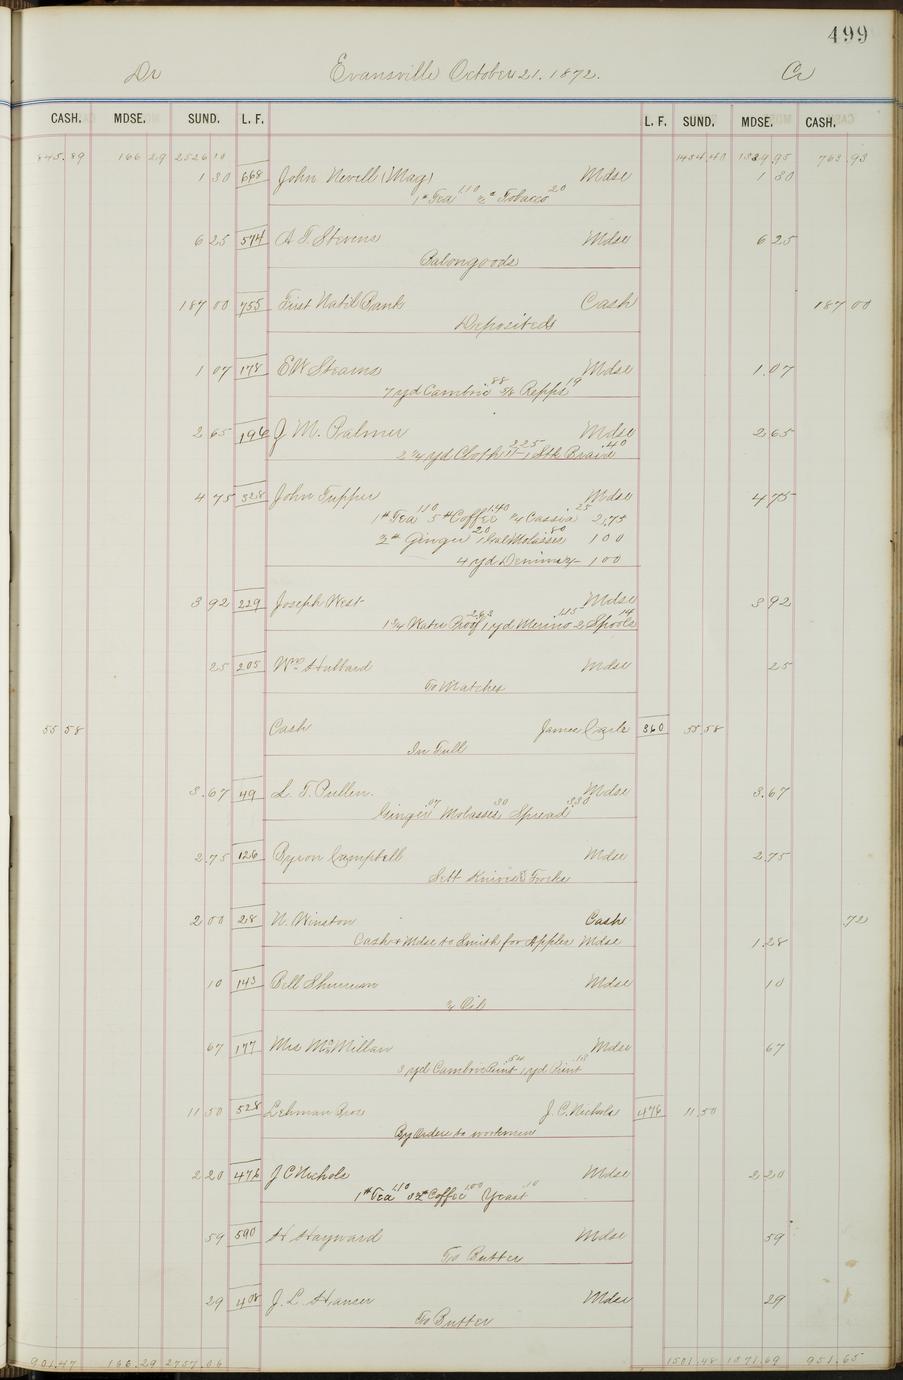 499
Dr Evansville October 21. 1872. Cr
CASH. MDSE. SUND. L. F. L. F. SUND. MDSE. CASH.
845.89 166 29 2526 10 1434.40 1339.95 763.93
1 30 668 John Nevell (Mag) Mdse 1 30
1# Tea 110 Tobacco 20
6 25 574 A T. Stevens Mdse 6 25
187 00 755 First Nat'l Bank Cash 187 00
Deposited
1 07 178 E W Stearns Mdse 1.07
7 yd Cambric 88 5/8 Repps 19
2 65 196 J M. Palmer Mdse 2.65
2 1/4 yd Cloth 2 25 1 Stk Braid .40
4 75 328 John Tupper Mdse 4 75
1# Tea 110 5# Coffee 1.40 1/4 Cassia 25 2.75
Ginger 20 1 Gal Molasses 80 1 00
4 yd Denim 1 00
3 92 229 Joseph West Mdse 3 92
1 3/4 Water Proof 2.63 1 yd Merino 1.15 2 Spools 14
25 205 Wm Hubbard Mdse 25
To Matches
55 58 Cash James 360 55.58
In Full
3.67 49 L. T. Pullen. Mdse 3.67
Ginger 07 Molasses 30 Spread 330
2.75 126 Byron Campbell Mdse 2.75
Sett Knives & Forks
2 00 28 N. Winston Cash .72
Cash & Mdse to Smith for Apples Mdse 1.28
10 143 Bell Mdse 10
Oil
67 177 Mrs McMillan Mdse 67
3 yd Cambric Print .54 1 yd Print .13
11 50 528 Lehman Bros J. C. Nichols 476 11.50
By Order to workmen
2 20 476 J C Nichols Mdse 2 20
1# Tea 1.10 Coffee 1.00 Yeast .10
59 590 H Hayward Mdse 59
To Butter
29 408 J. L. Hanser Mdse 29
To Butter
901.47 166.29 2757.06 1501.48 1371.69 951.65